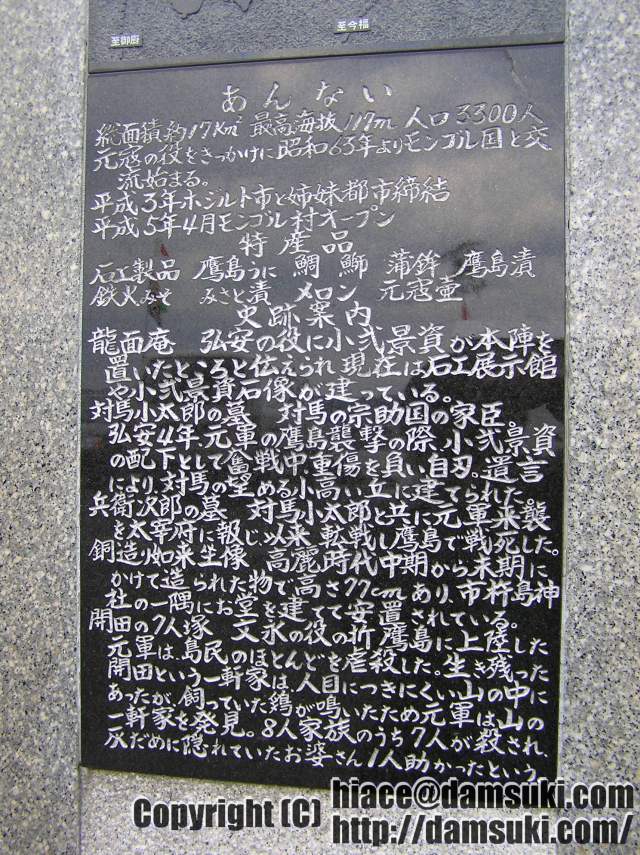 至御厨
至今福
あんない
総面積約17Km² 最高海抜117m 人口3300人
元寇の役をきっかけに昭和63年よりモンゴル国と交
流始まる。
平成3年ホジルト市と姉妹都市締結
平成5年4月モンゴル村オープン
特産品
石工製品 鷹島うに 鯛 鰤 蒲鉾 鷹島漬
鉄火みそ みさと漬 メロン 元寇壷
史跡案内
龍面庵 弘安の役に小弐景資が本陣を
置いたところと伝えられ現在は石工展示館
や小弐景資石像が建っている。
対馬小太郎の墓 対馬の宗助国の家臣。
弘安4年、元軍の鷹島襲撃の際、小弐景資
の配下として奮戦中、重傷を負い自刃。遺言
により、対馬の望める小高い丘に建てられた。
兵衛次郎の墓 対馬小太郎と共に元軍来襲
を太宰府に報じ、以来転戦し鷹島で戦死した。
銅造如来坐像 高麗時代中期から末期に
かけて造られた物で高さ77cmあり、市杵島神
社の一隅にお堂を建てて安置されている。
開田の7人塚 文永の役の折、鷹島に上陸した
元軍は、島民のほとんどを虐殺した。生き残った
開田という一軒家は、人目につきにくい山の中に
あったが、飼っていた鶏が鳴いたため元軍は山の
一軒家を発見。8人家族のうち7人が殺され
灰だめに隠れていたお婆さん1人助かったという。
Copyright (C) hiace@damsuki.com
http://damsuki.com/